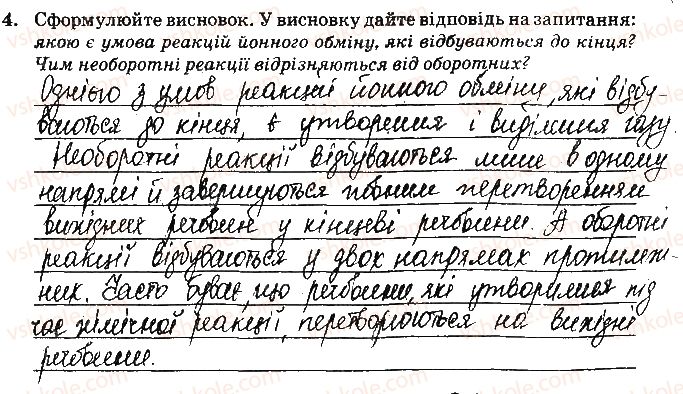 4. Сформулюйте висновок. У висновку дайте відповідь на запитання:
якою є умова реакцій йонного обміну, які відбуваються до кінця?
Чим необоротні реакції відрізняються від оборотних?
Однією з умов реакцій йонного обміну, які відбу-
ваються до кінця, є утворення і виділення газу.
Необоротні реакції відбуваються лише в одному
напрямі й завершуються повним перетворенням
вихідних речовин у кінцеві речовини. А оборотні
реакції відбуваються у двох напрямах протилеж-
них. Часто буває, що речовини, які утворилися під
час хімічної реакції, перетворюються на вихідні
речовини.